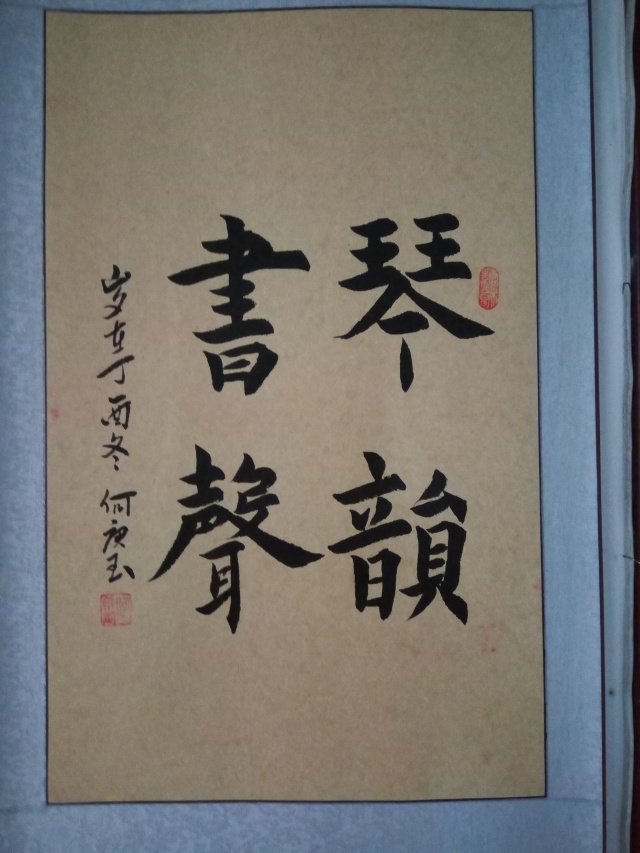 琴韻
書聲
岁在丁酉冬 何庚玉